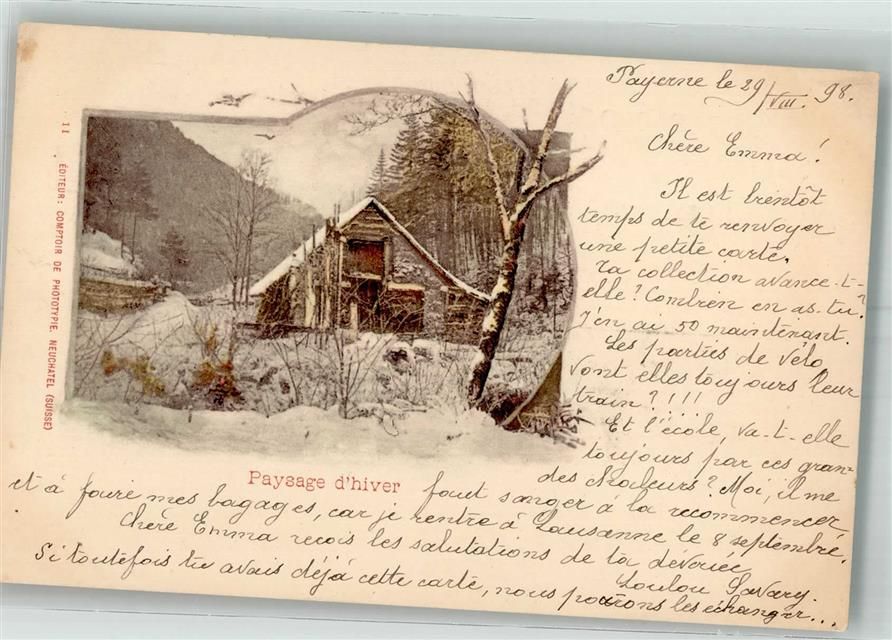 Payerne le 29/VIII. 98.
Chère Emma!
Il est bientôt
temps de te renvoyer
une petite carte.
Ta collection avance-t-
elle? Combien en as-tu?
J'en ai 50 maintenant.
Les parties de vélo
vont elles toujours leur
train?!!!
Et l'école, va-t-elle
toujours par ces gran=
des chaleurs? Moi, il me
faut songer à la recommencer
et à faire mes bagages, car je rentre à Lausanne le 8 septembre.
Chère Emma reçois les salutations de ta dévouée
Loulou Savary.
Si toutefois tu avais déjà cette carte, nous pourrons les échanger...
Paysage d'hiver
11 ÉDITEUR: COMPTOIR DE PHOTOTYPIE, NEUCHATEL (SUISSE)